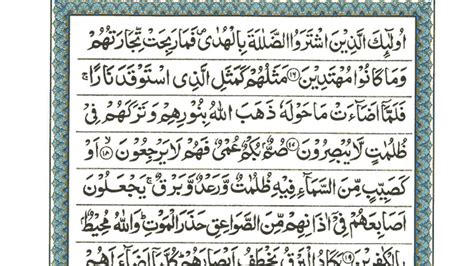 اُولٰٓئِكَ الَّذِيْنَ اشْتَرَوُا الضَّلٰلَةَ بِالْهُدٰى فَمَا رَبِحَتْ تِّجَارَتُهُمْ
وَمَا كَانُوْا مُهْتَدِيْنَ ۝۱۶ مَثَلُهُمْ كَمَثَلِ الَّذِى اسْتَوْقَدَ نَارًا ۚ
فَلَمَّآ اَضَآءَتْ مَا حَوْلَهٗ ذَهَبَ اللّٰهُ بِنُوْرِهِمْ وَتَرَكَهُمْ فِىْ
ظُلُمٰتٍ لَّا يُبْصِرُوْنَ ۝۱۷ صُمٌّۢ بُكْمٌ عُمْىٌ فَهُمْ لَا يَرْجِعُوْنَ ۝۱۸ اَوْ
كَصَيِّبٍ مِّنَ السَّمَآءِ فِيْهِ ظُلُمٰتٌ وَّرَعْدٌ وَّبَرْقٌ ۚ يَجْعَلُوْنَ
اَصَابِعَهُمْ فِىْٓ اٰذَانِهِمْ مِّنَ الصَّوَاعِقِ حَذَرَ الْمَوْتِ ؕ وَاللّٰهُ مُحِيْطٌۢ
بِالْكٰفِرِيْنَ ۝۱۹ يَكَادُ الْبَرْقُ يَخْطَفُ اَبْصَارَهُمْ ؕ كُلَّمَآ اَضَآءَ لَهُمْ